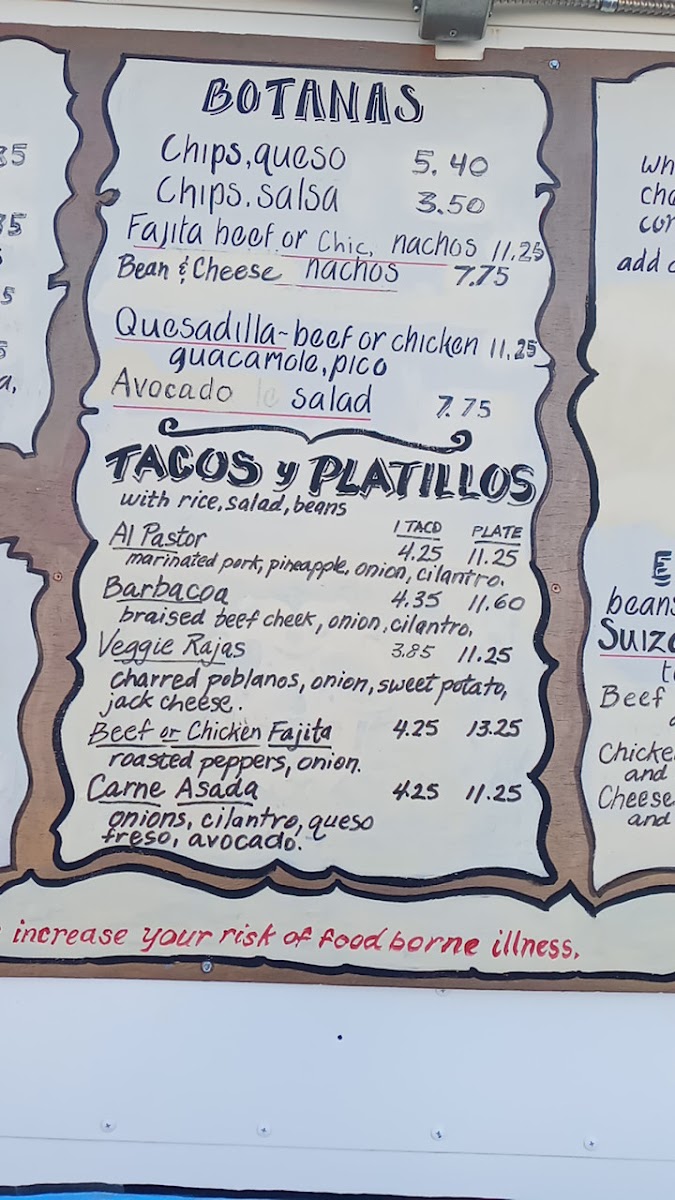 BOTANAS
Chips, queso 5.40
Chips. salsa 3.50
Fajita beef or Chic, nachos 11.25
Bean & Cheese nachos 7.75
Quesadilla~beef or chicken 11.25
guacamole, pico
Avocado salad 7.75
TACOS y PLATILLOS
with rice, salad, beans
1 TACO PLATE
Al Pastor 4.25 11.25
marinated pork, pineapple, onion, cilantro.
Barbacoa 4.35 11.60
braised beef cheek, onion, cilantro,
Veggie Rajas 3.85 11.25
charred poblanos, onion, sweet potato,
jack cheese.
Beef or Chicken Fajita 4.25 13.25
roasted peppers, onion.
Carne Asada 4.25 11.25
onions, cilantro, queso
freso, avocado.
increase your risk of food borne illness.
add
beans
Beef
and
Cheese
and